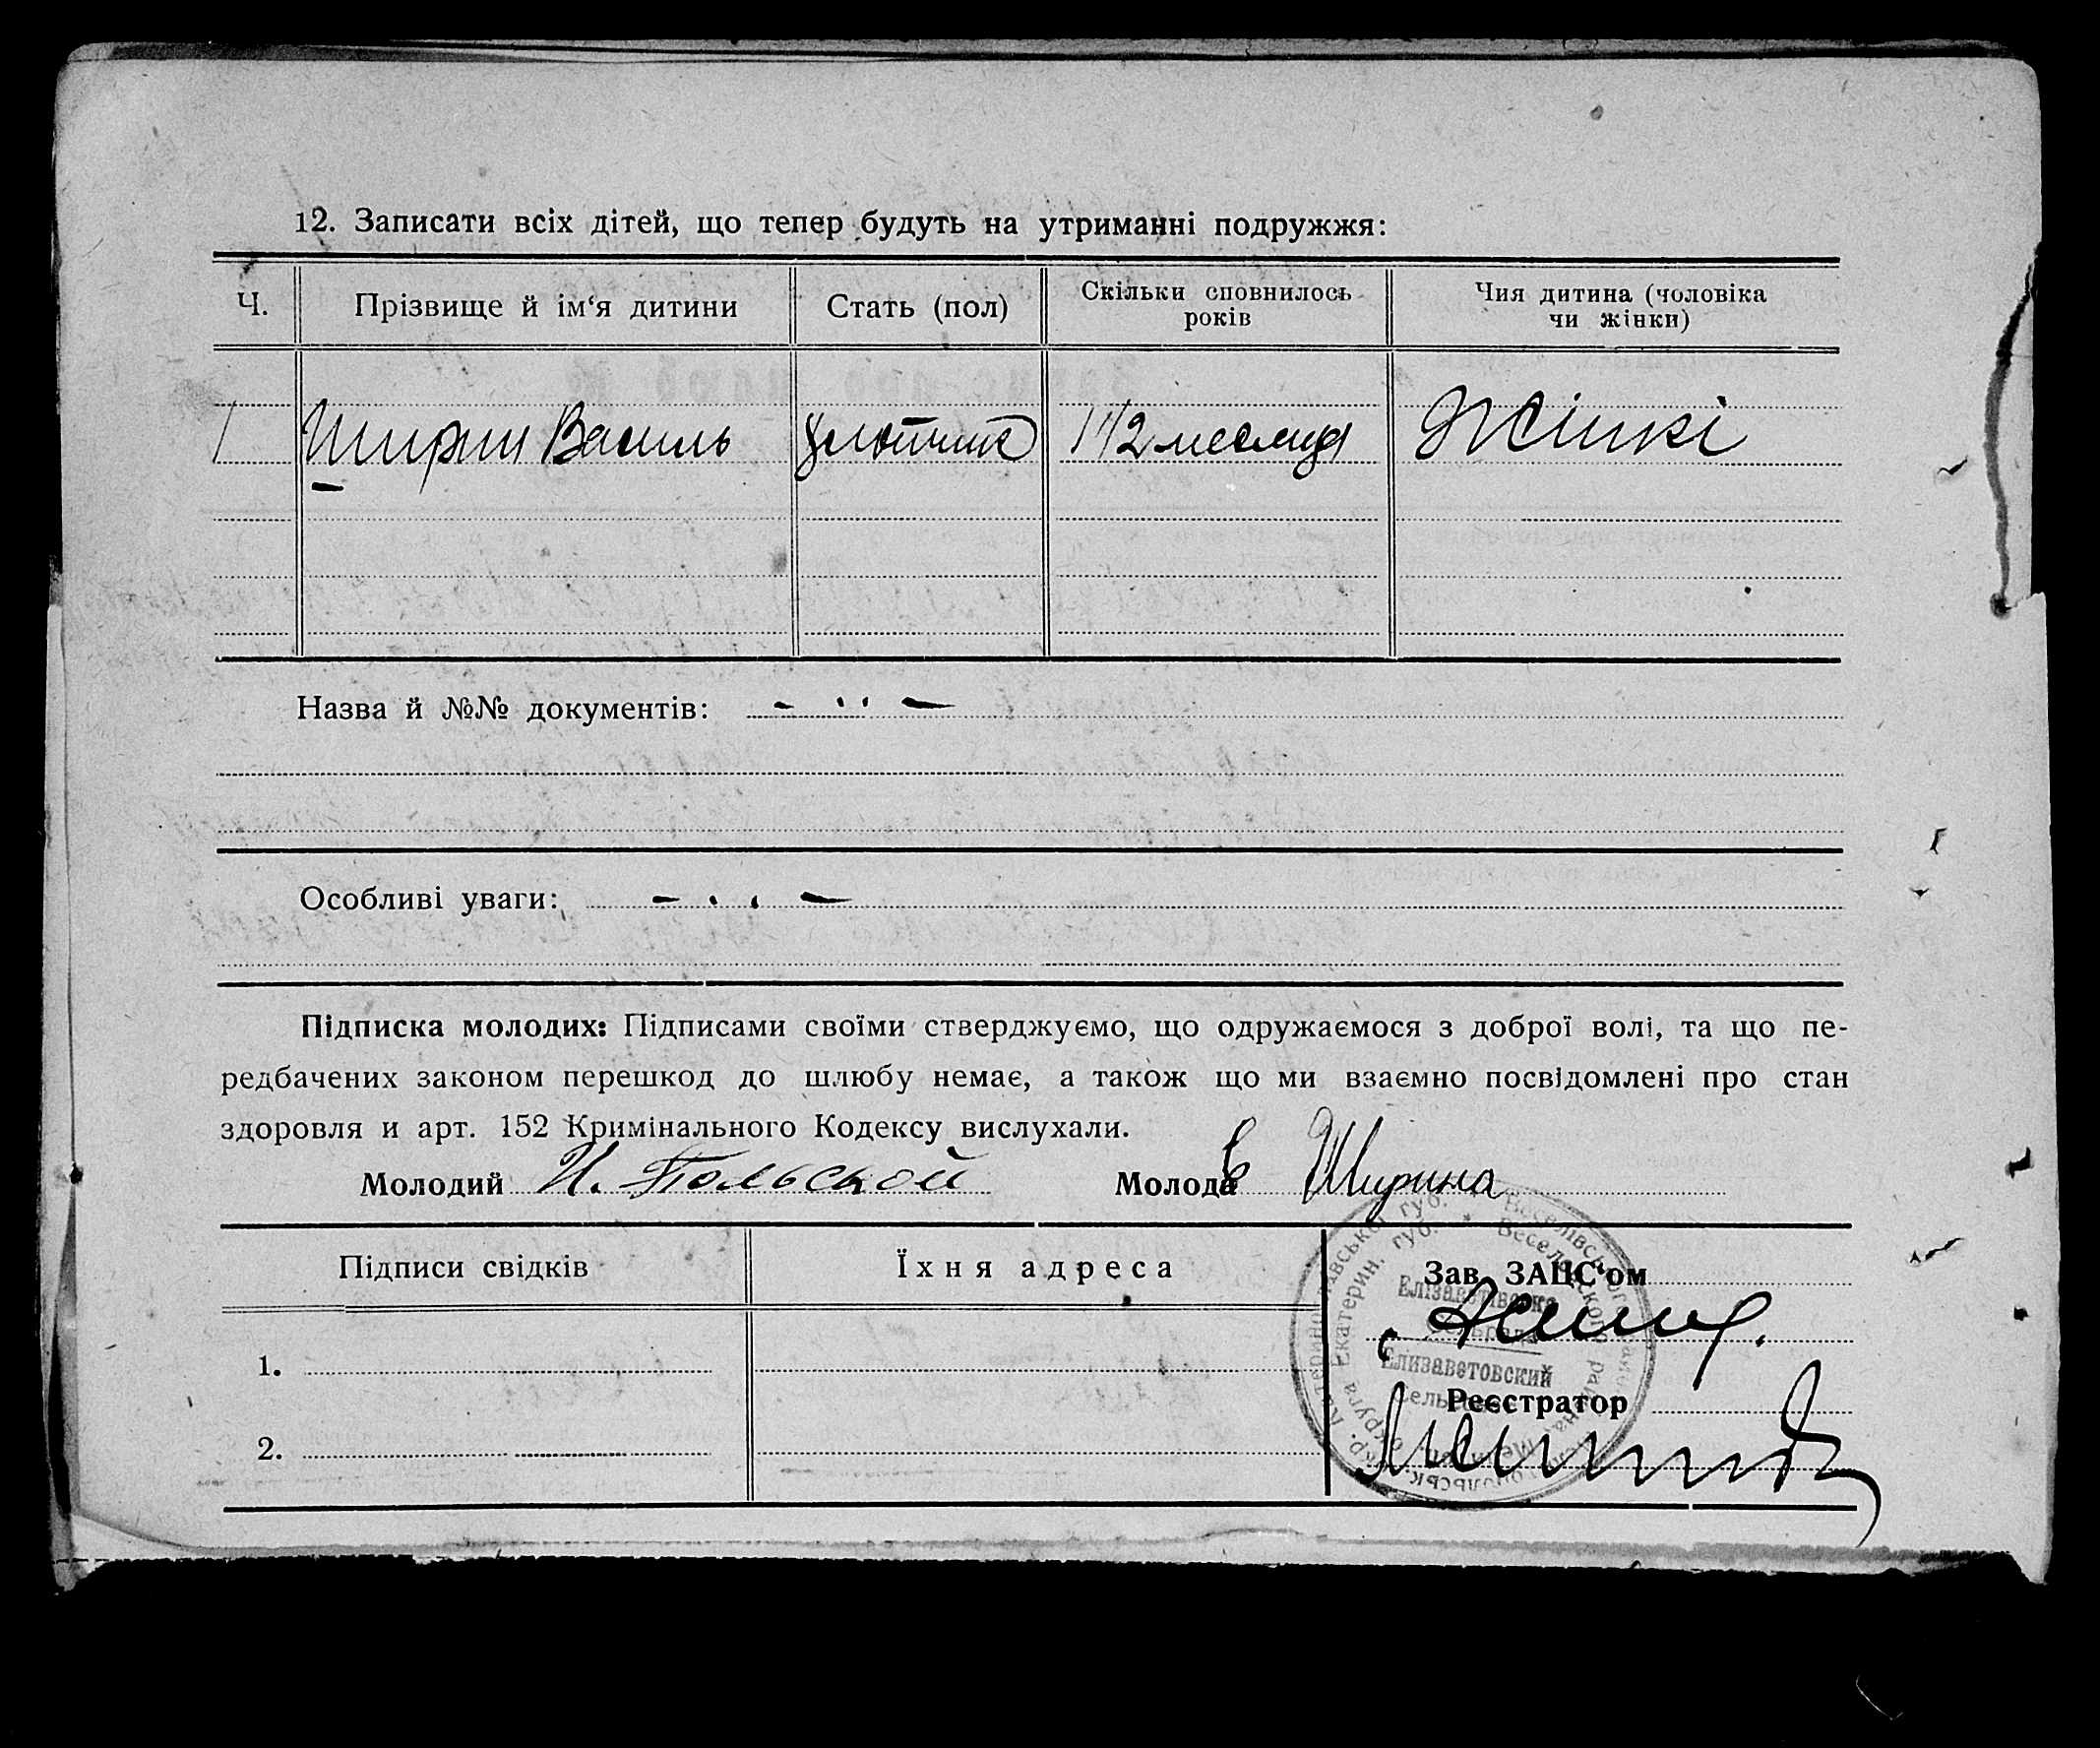 12. Записати всіх дітей, що тепер будуть на утриманні подружжя:
Ч. Прізвище й ім‘я дитини Стать (пол) Скільки сповнилось років Чия дитина (чоловіка чи жінки)
1 Ширин Василь 1 1/2 месяця Жінкі
Назва й №№ документів:
Особливі уваги:
Підписка молодих: Підписами своїми стверджуємо, що одружаємося з доброї волі, та що пе-
редбачених законом перешкод до шлюбу немає, а також що ми взаємно посвідомлені про стан
здоровля и арт. 152 Кримінального Кодексу вислухали.
Молодий И. Польской Молода Е Ширина
Підписи свідків Їхня адреса Зав. ЗАЦС‘ом
Елізаветівська
Елизаветовский
1.
Реєстратор
2.